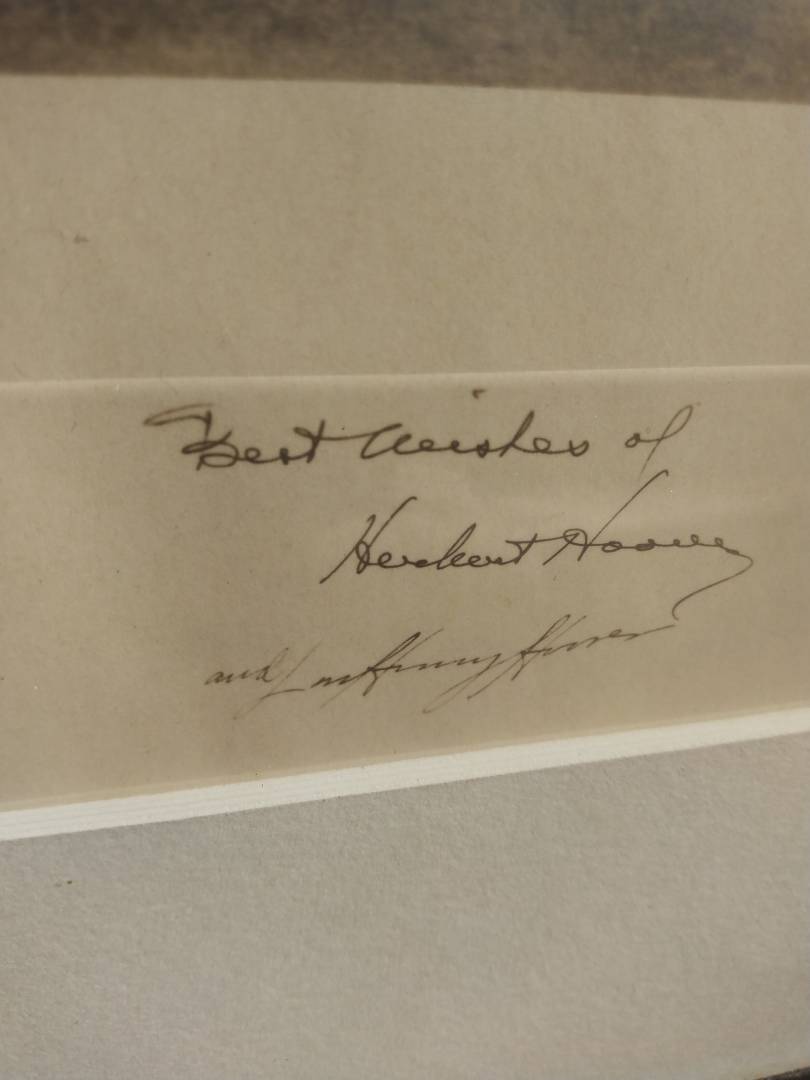 Best Wishes of
Herbert Hoover
and Lou Henry Hoover